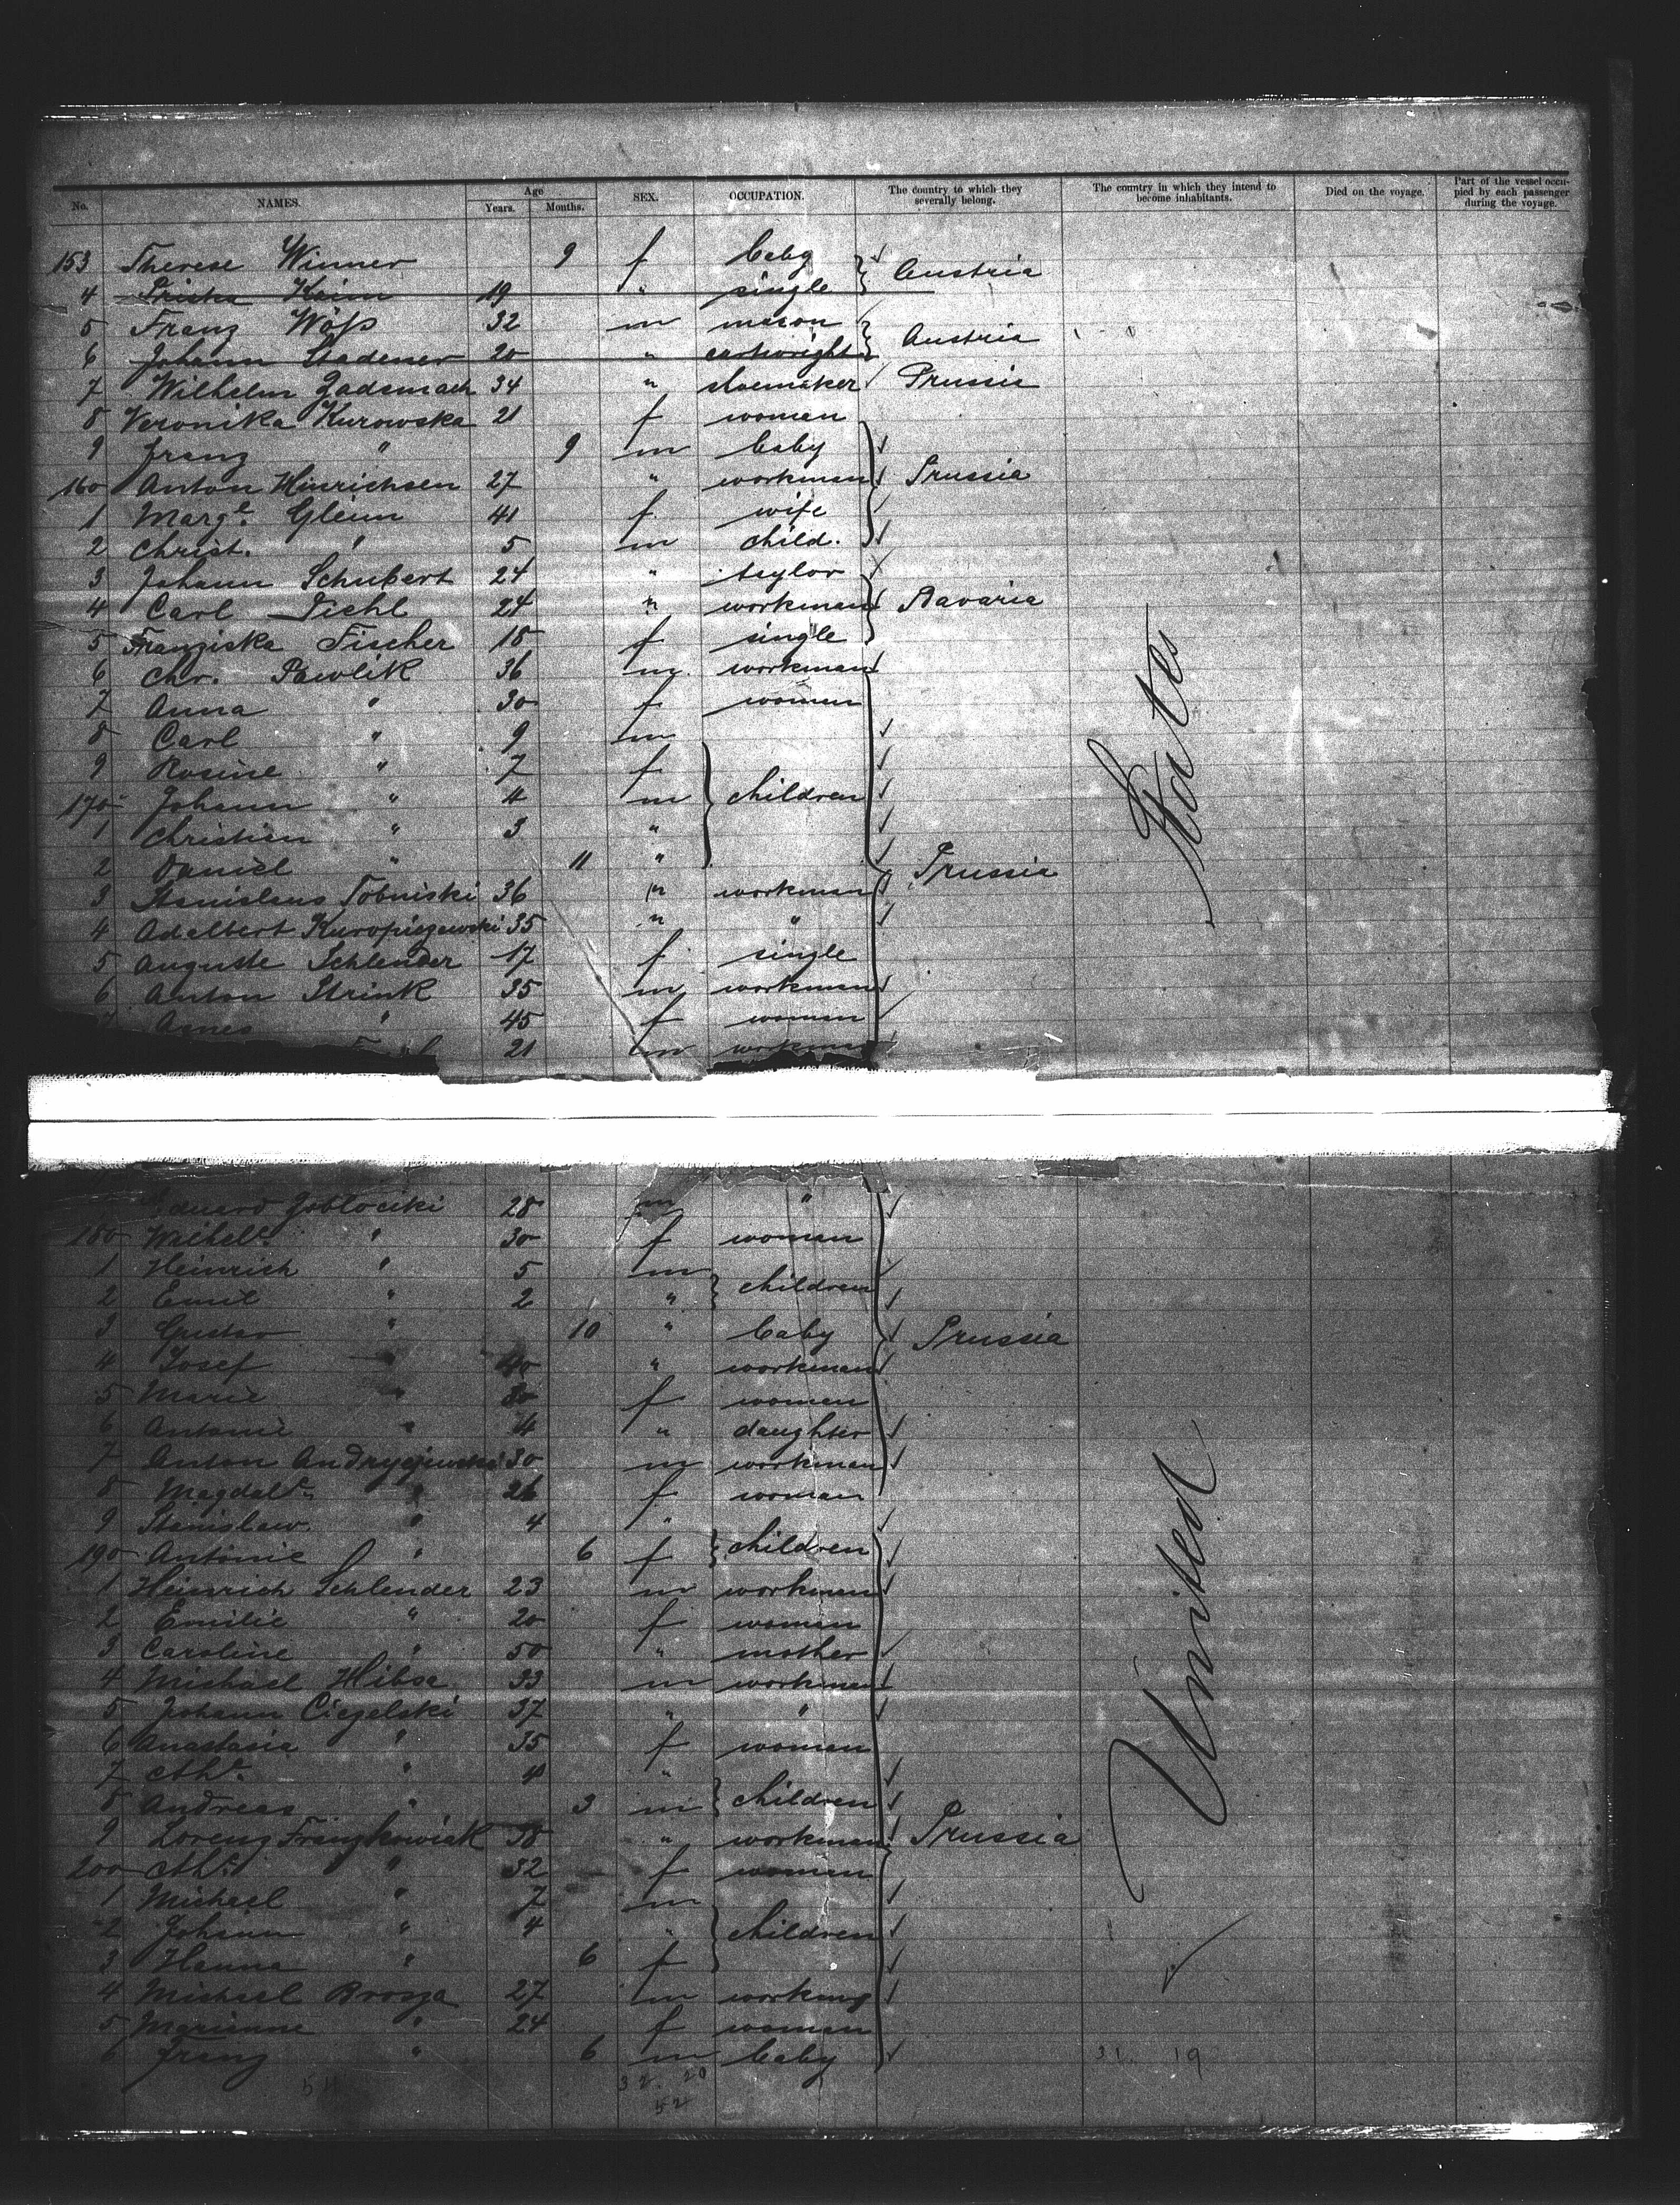 No. NAMES. Age Years. Months. SEX. OCCUPATION. The country to which they severally belong. The country in which they intend to become inhabitants. Died on the voyage. Part of the vessel occupied by each passenger during the voyage.
153 Therese Winner 9 f baby Austria
4 Priska Keim 19 " single
5 Franz Wöß 32 m mason Austria
6 Johann Stadener 20 " cartwright
7 Wilhelm Zadsmach 34 " shoemaker Prussia
8 Veronika Kurowska 21 f woman
9 Franz " 9 m baby
160 Anton Hinrichsen 27 " workman Prussia
1 Marge. Gleim 41 f wife
2 Christ. " 5 m child.
3 Johann Schubert 24 " taylor
4 Carl Diehl 24 " workman Bavaria
5 Franziska Fischer 18 f single
6 Chr. Pawlik 36 m workman
7 Anna " 30 f woman
8 Carl " 9 m
9 Rosine " 7 f
170 Johann " 4 m children
1 Christian " 3 "
2 Daniel " 11 " Prussia
3 Stanislaus Tobniski 36 " workman
4 Adelbert Kuropiszewski 35 " "
5 Auguste Schlender 17 f single
6 Anton Strink 35 m workman
7 Agnes " 45 f woman
21 m workman
States
Eduard Zoblociki 28 m "
180 Wilhele. " 30 f woman
1 Heinrich " 5 m children
2 Emil " 2 "
3 Gustav " 10 " baby Prussia
4 Josef " 40 " workman
5 Marie " 30 f woman
6 Antonie " 4 " daughter
7 Anton Andryejewski 30 m workman
8 Magdale. " 26 f woman
9 Stanislaw " 4 "
190 Antonie " 6 f children
1 Heinrich Schlender 23 m workman
2 Emilie " 20 f woman
3 Caroline " 50 " mother
4 Michael Hibse 33 m workman
5 Johann Ciegelski 37 " "
6 Anastasia " 35 f woman
7 Cthe. " 4 "
8 Andreas " 3 m children
9 Lorenz Franzkowiak 38 " workman Prussia
200 Cthe. " 32 f woman
1 Michael " 7 m
2 Johann " 4 " children
3 Hanna " 6 f
4 Michael Brosza 27 m workmg
5 Marianne " 24 f woman
6 Franz " 6 m baby
United
31. 19
32. 20
52